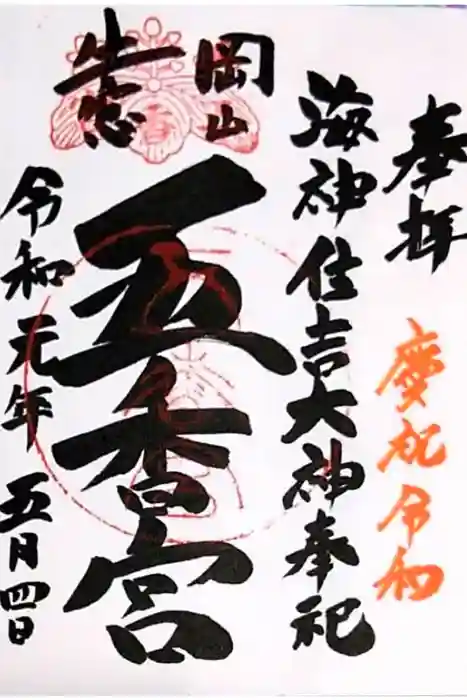 奉拝
慶祝令和
海神住吉大神奉祀
岡山
牛窓
五香宮
令和元年五月四日